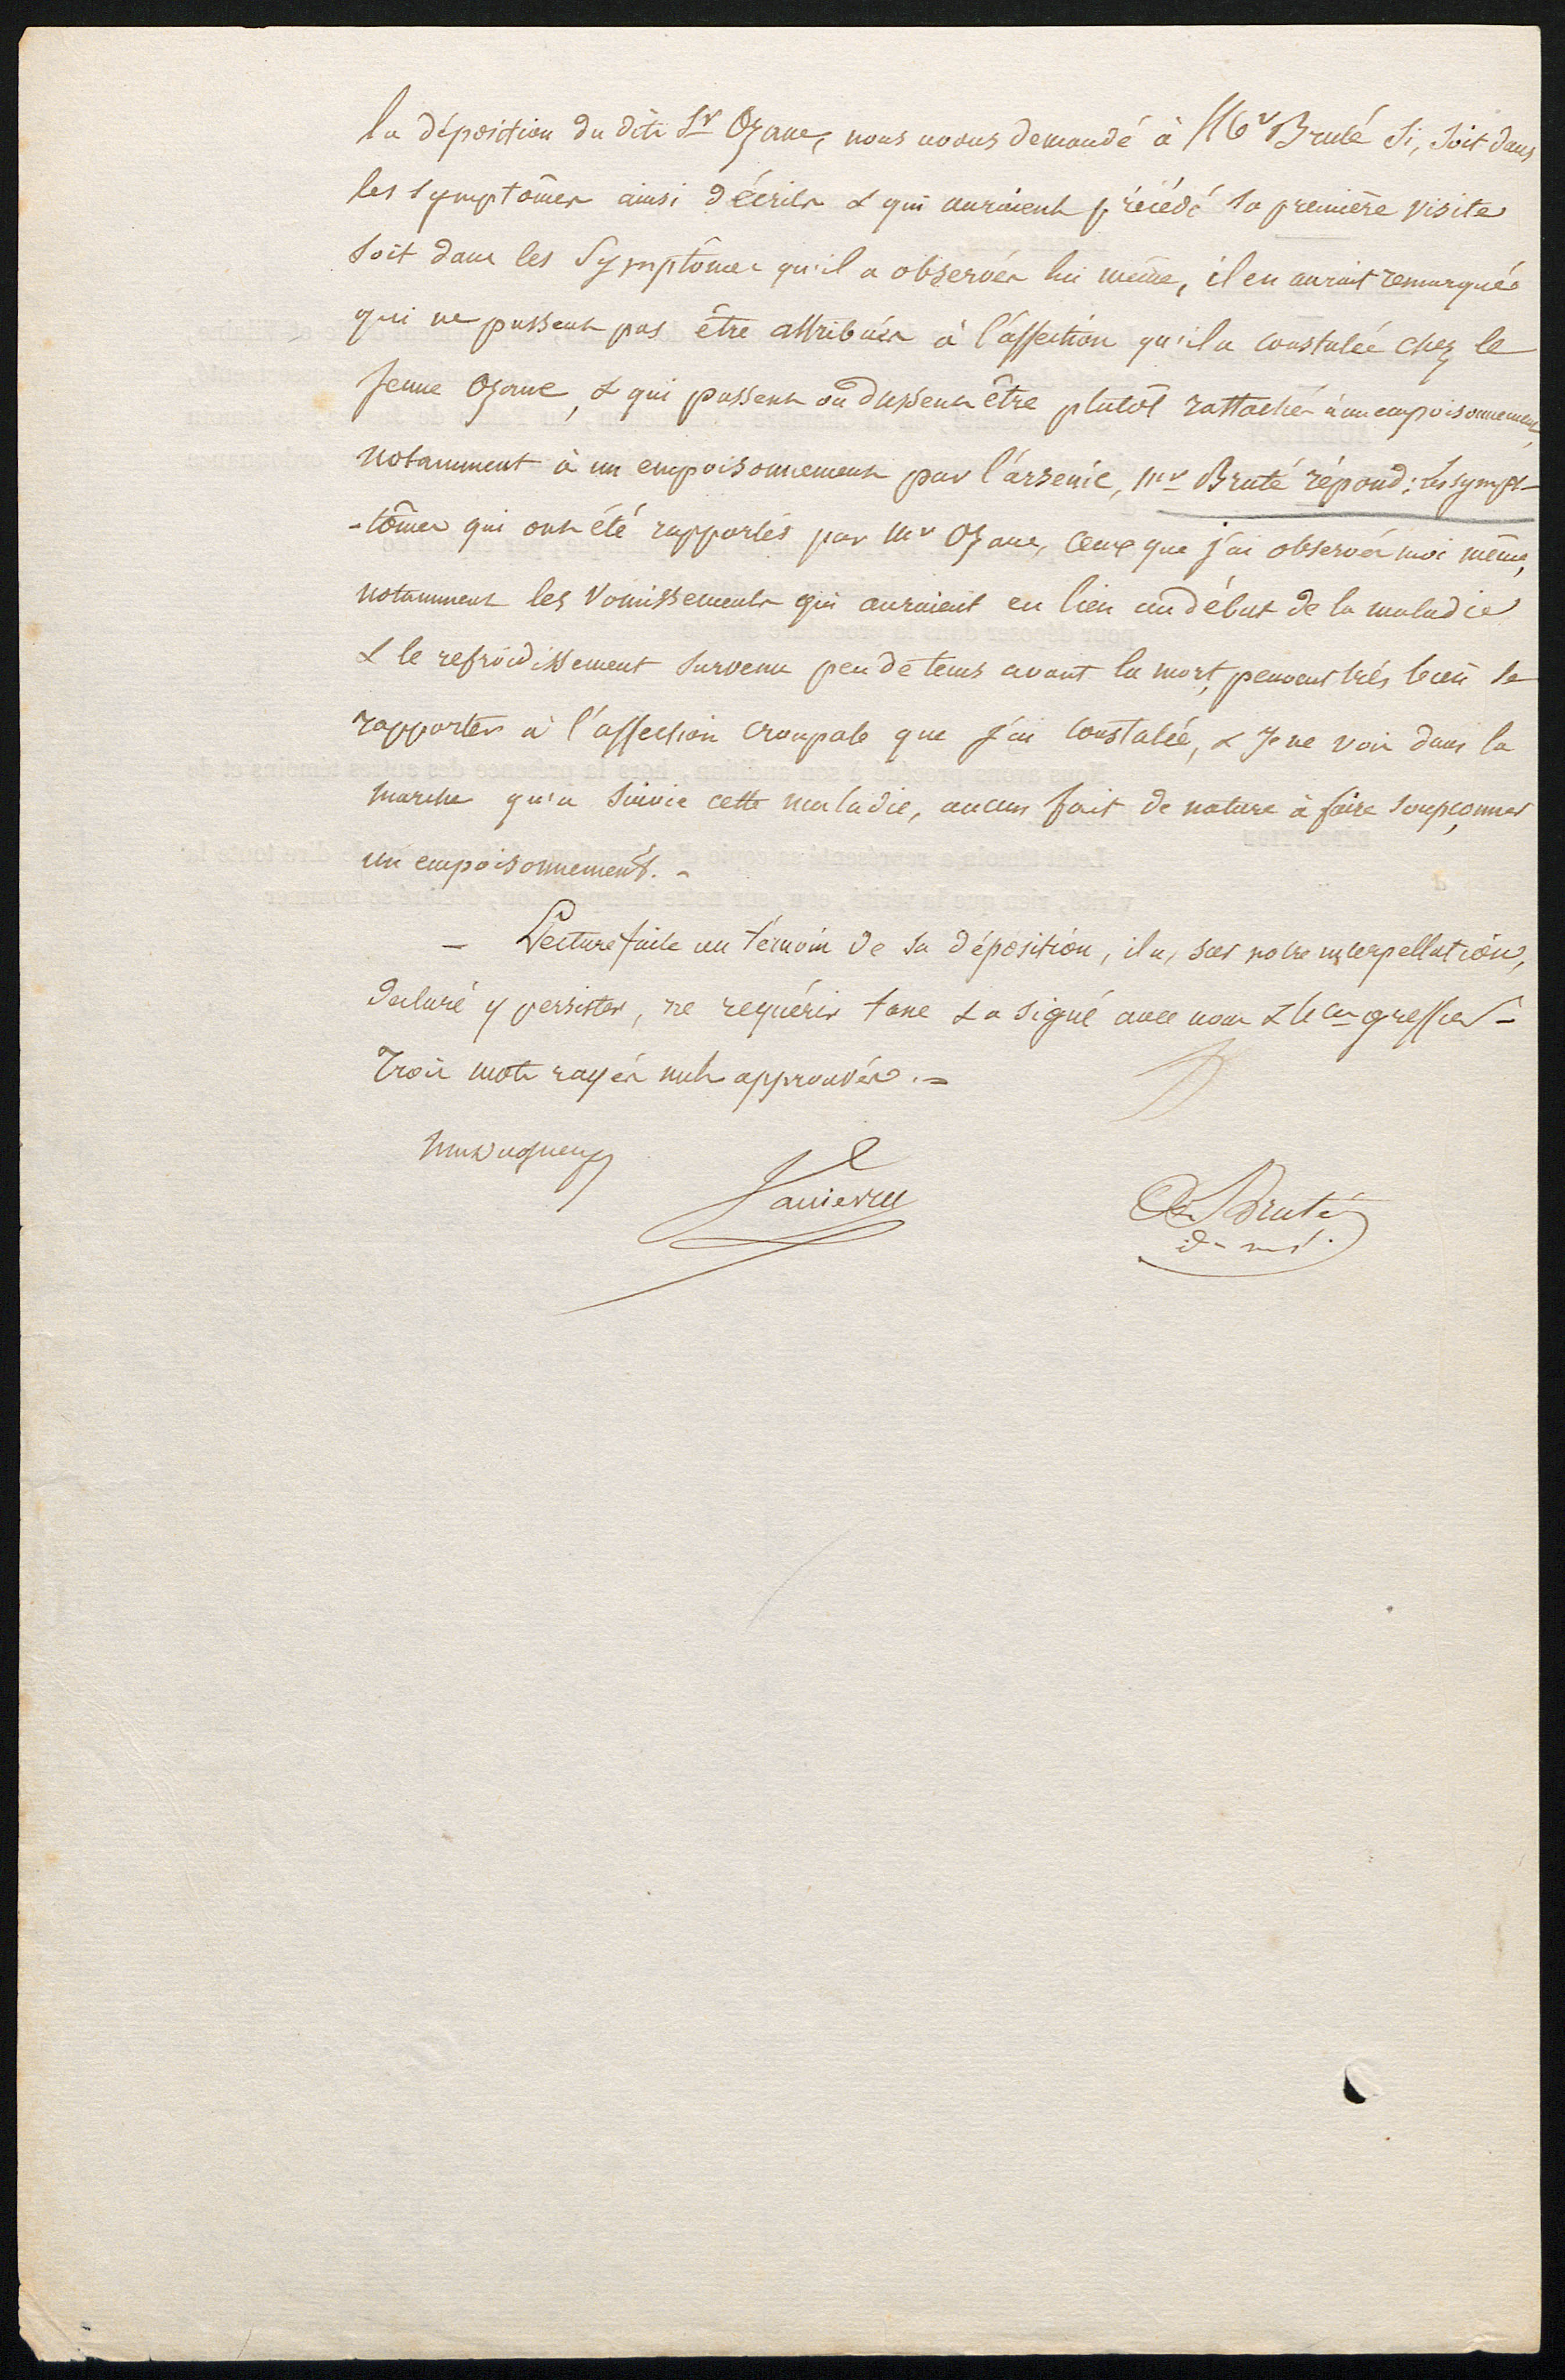 la déposition du dit Sr Ozanne, nous avons demandé à Mr Bruté si, soit dans
les symptômes ainsi décrits & qui auraient précédé sa première visite
soit dans les symptômes qu'il a observés lui même, il en aurait remarqués
qui ne pussent pas être attribués à l'affection qu'il a constatée chez le
jeune Ozanne, & qui pussent ou dussent être plutôt rattachés à un empoisonnement,
notamment à un empoisonnement par l'arsenic, Mr Bruté répond : les symp-
-tômes qui ont été rapportés par Mr Ozanne, ceux que j'ai observés moi même,
notamment les vomissements qui auraient eu lieu au début de la maladie
& le refroidissement survenu peu de tems avant la mort, peuvent très bien se
rapporter à l'affection croupale que j'ai constatée, & je ne vois dans la
marche qu'a suivie cette maladie, aucun fait de nature à faire soupçonner
un empoisonnement. -
- Lecture faite au témoin de sa déposition, il a, sur notre interpellation,
déclaré y persister, ne requérir taxe & a signé avec nous & le Cis greffier -
Trois mots rayés nuls approuvés. -
Vannier
A. Bruté
d. m.